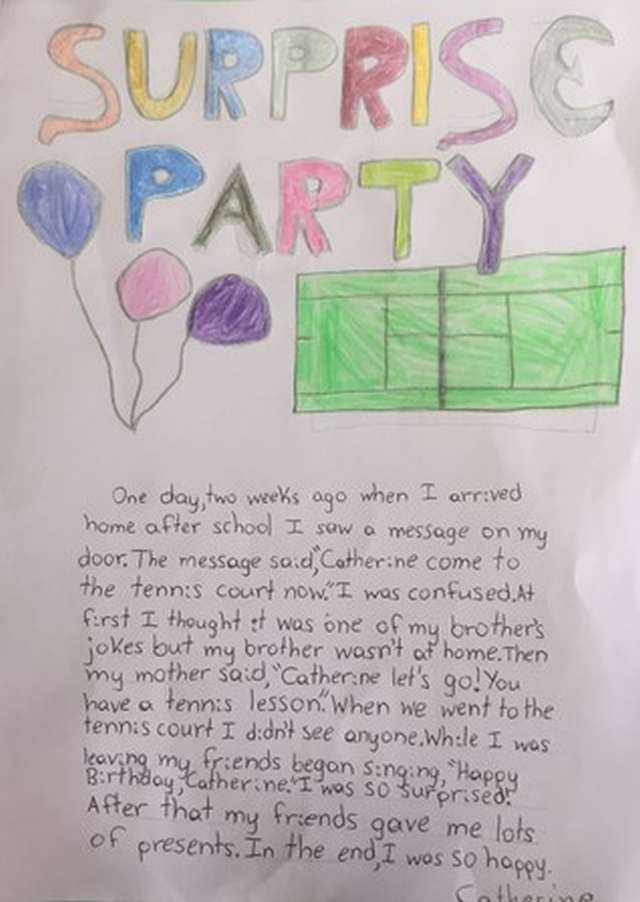 SURPRISE
PARTY
One day, two weeks ago when I arrived
home after school I saw a message on my
door. The message said, "Catherine come to
the tennis court now." I was confused. At
first I thought it was one of my brother's
jokes but my brother wasn't at home. Then
my mother said, "Catherine let's go! You
have a tennis lesson." When we went to the
tennis court I didn't see anyone. While I was
leaving my friends began singing, "Happy
Birthday, Catherine." I was so surprised!
After that my friends gave me lots
of presents. In the end, I was so happy.
Catherine